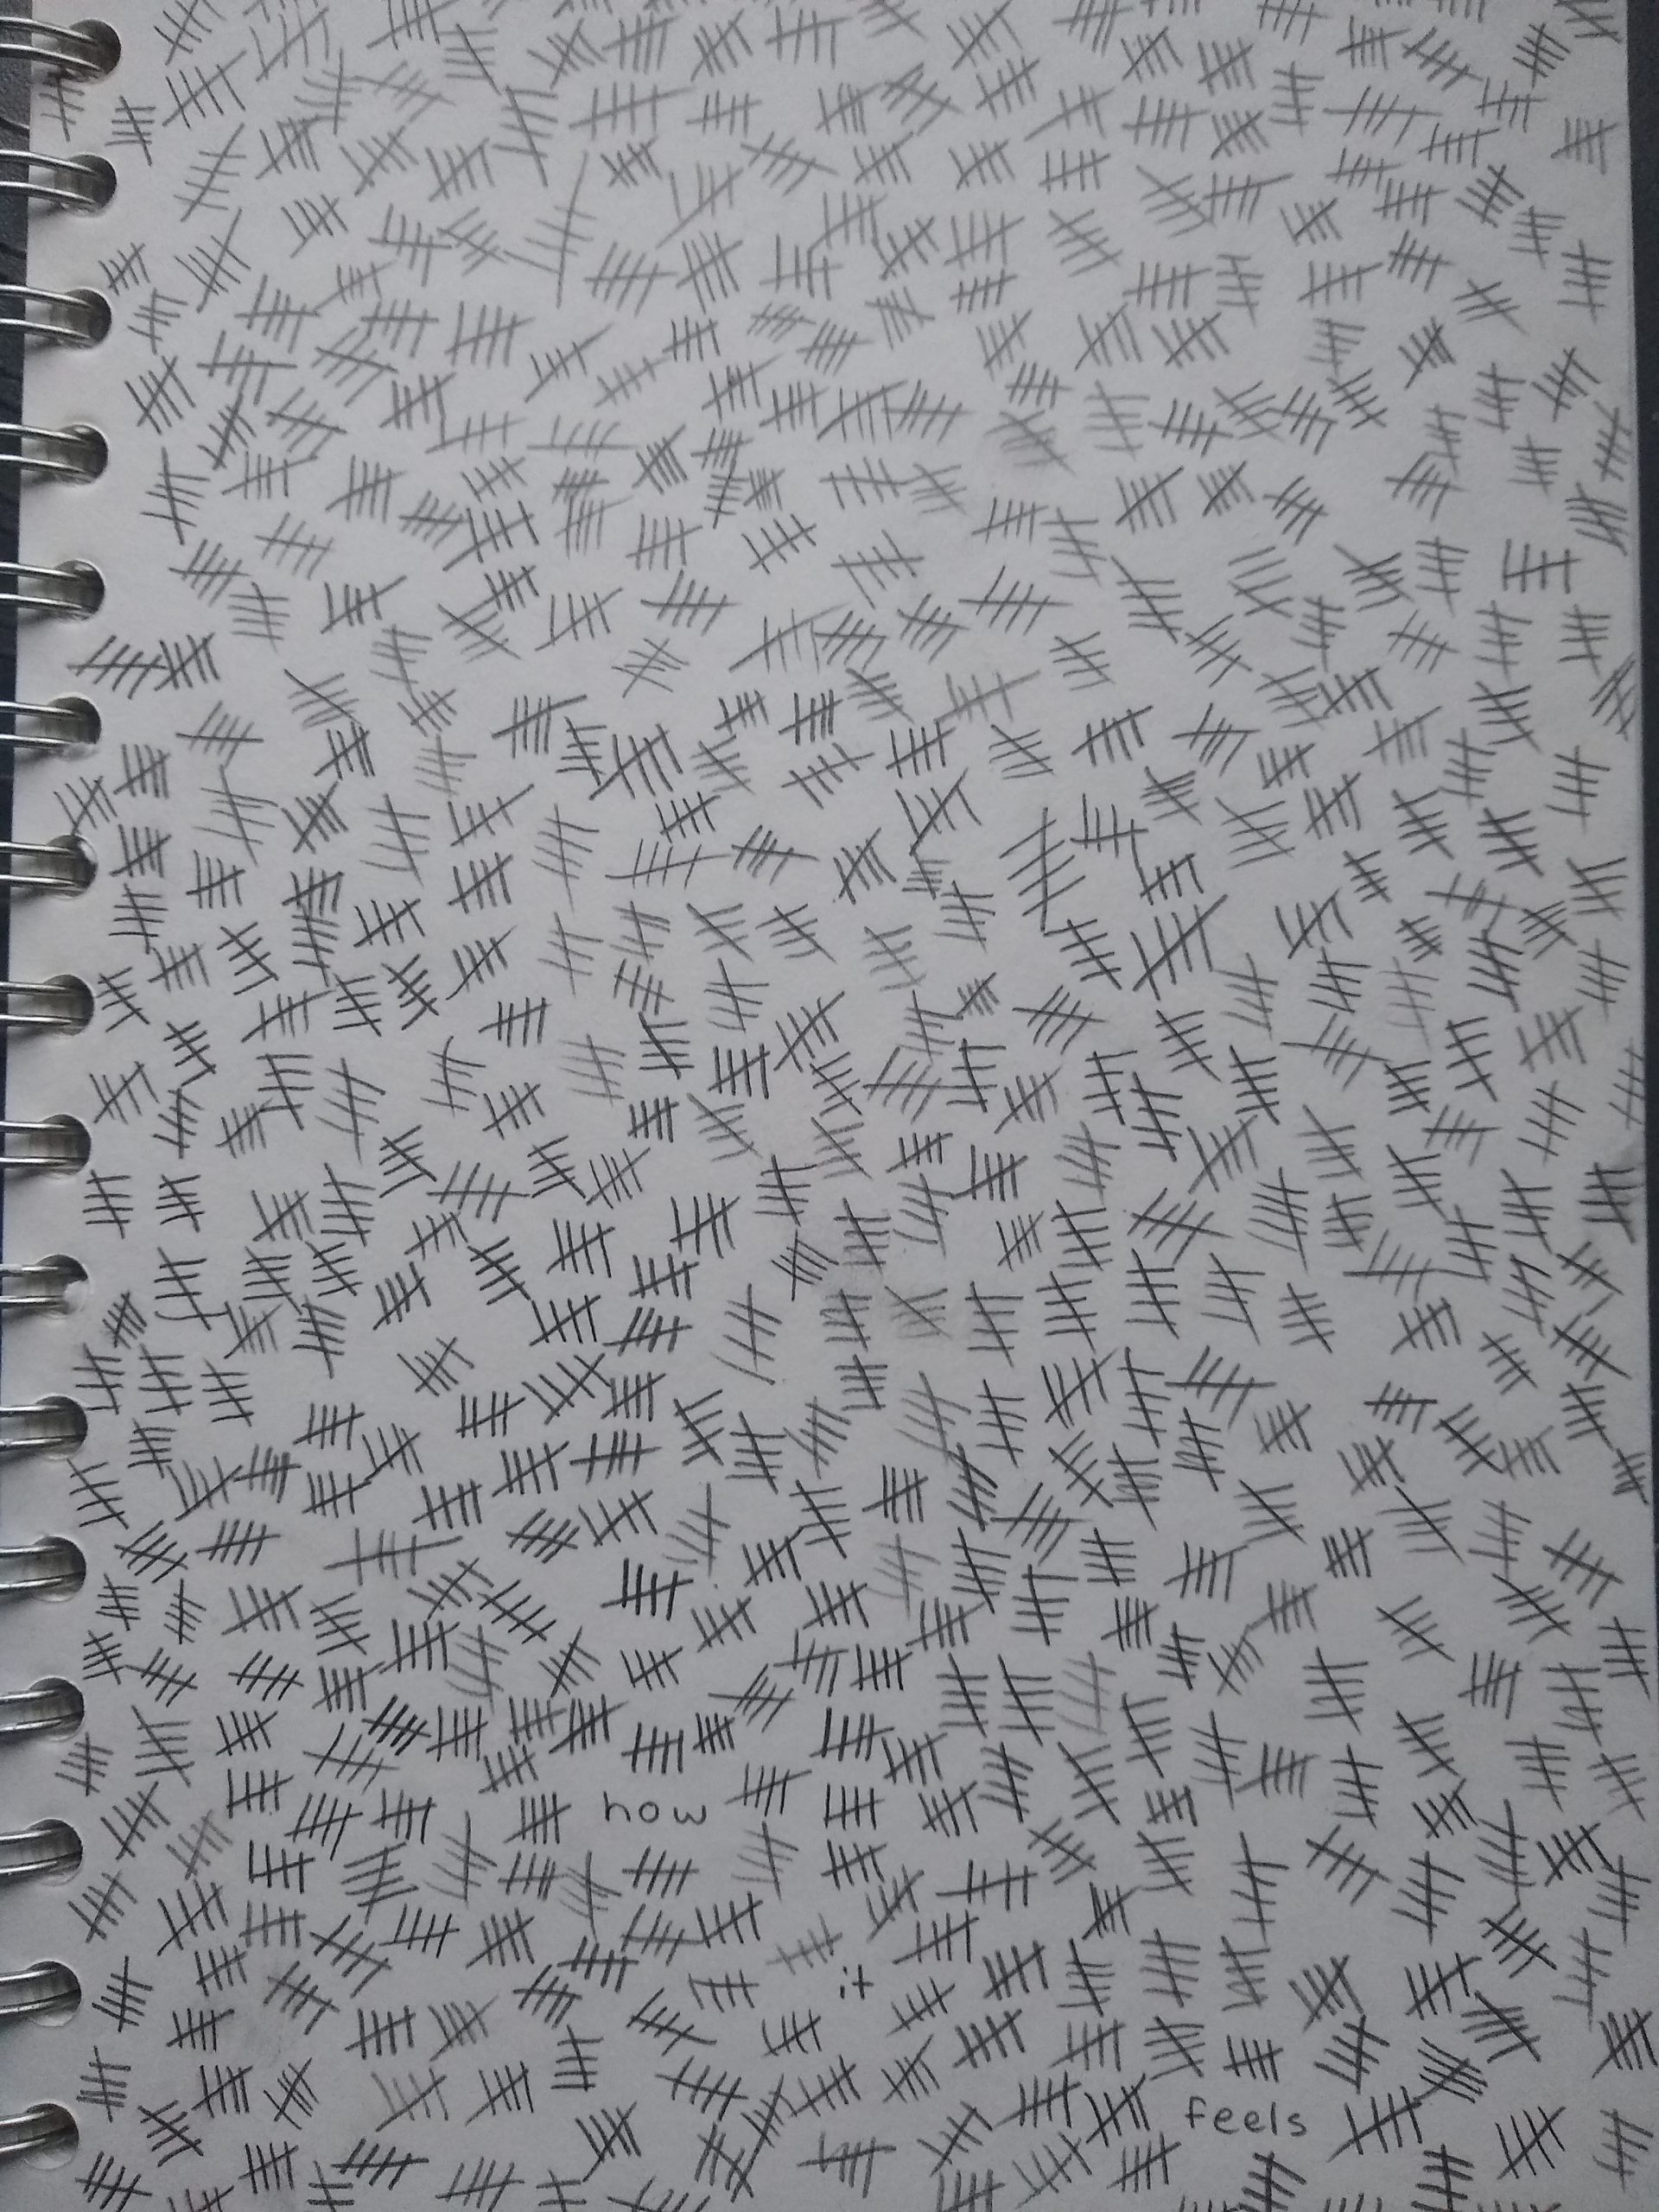 how
it
feels